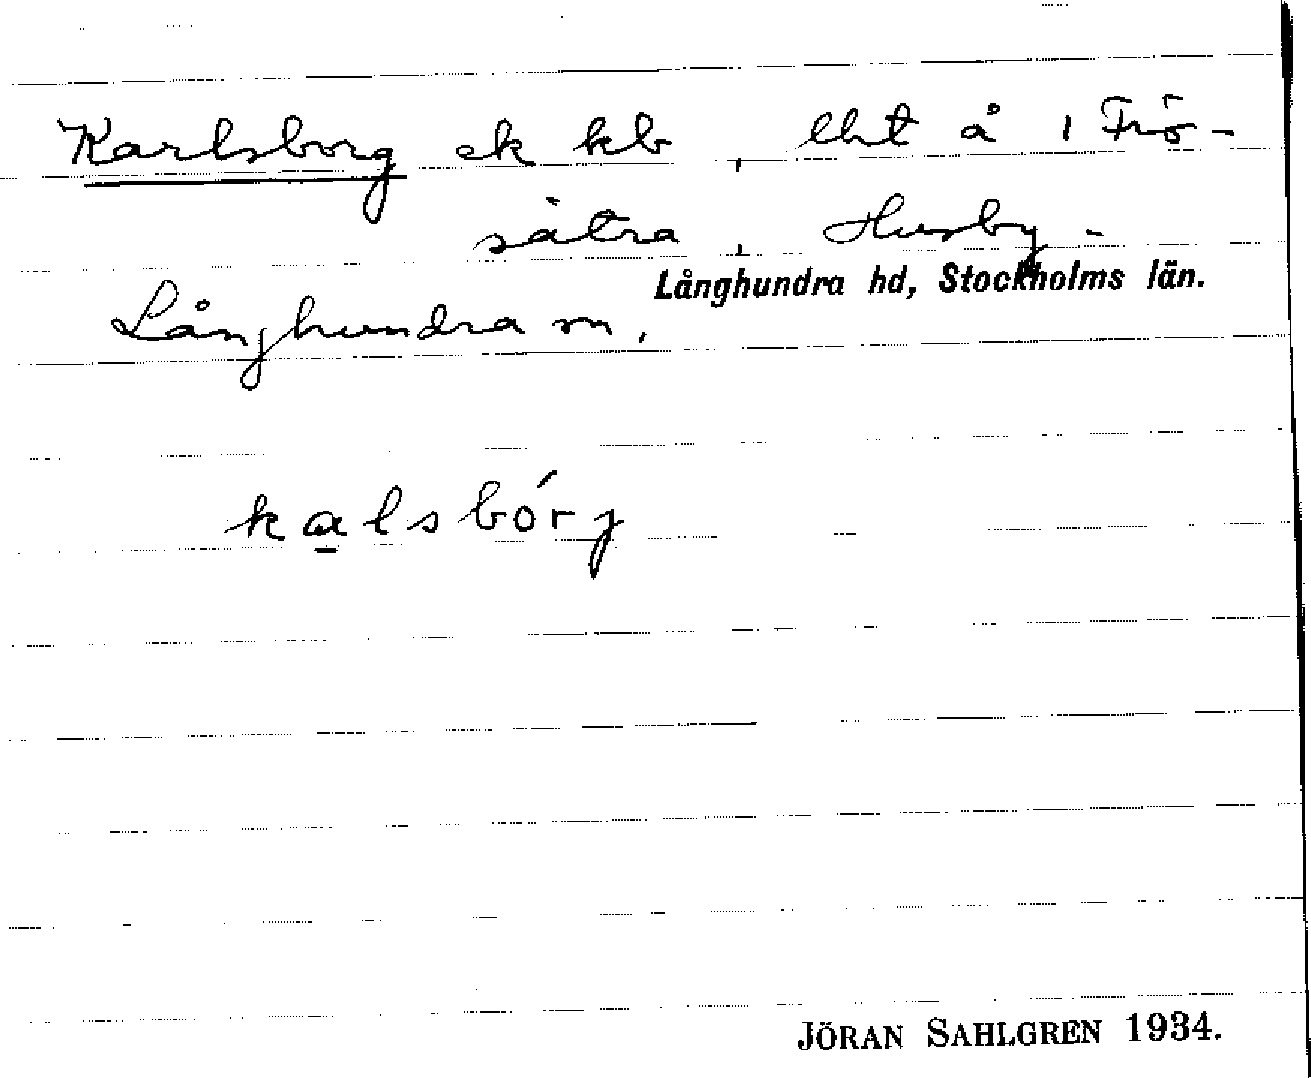 Karlsborg ek kb, lht å 1 Frö-
sätra, Husby-
Långhundra hd, Stockholms län.
Långhundra sn.
kalsbórj
JÖRAN SAHLGREN 1934.